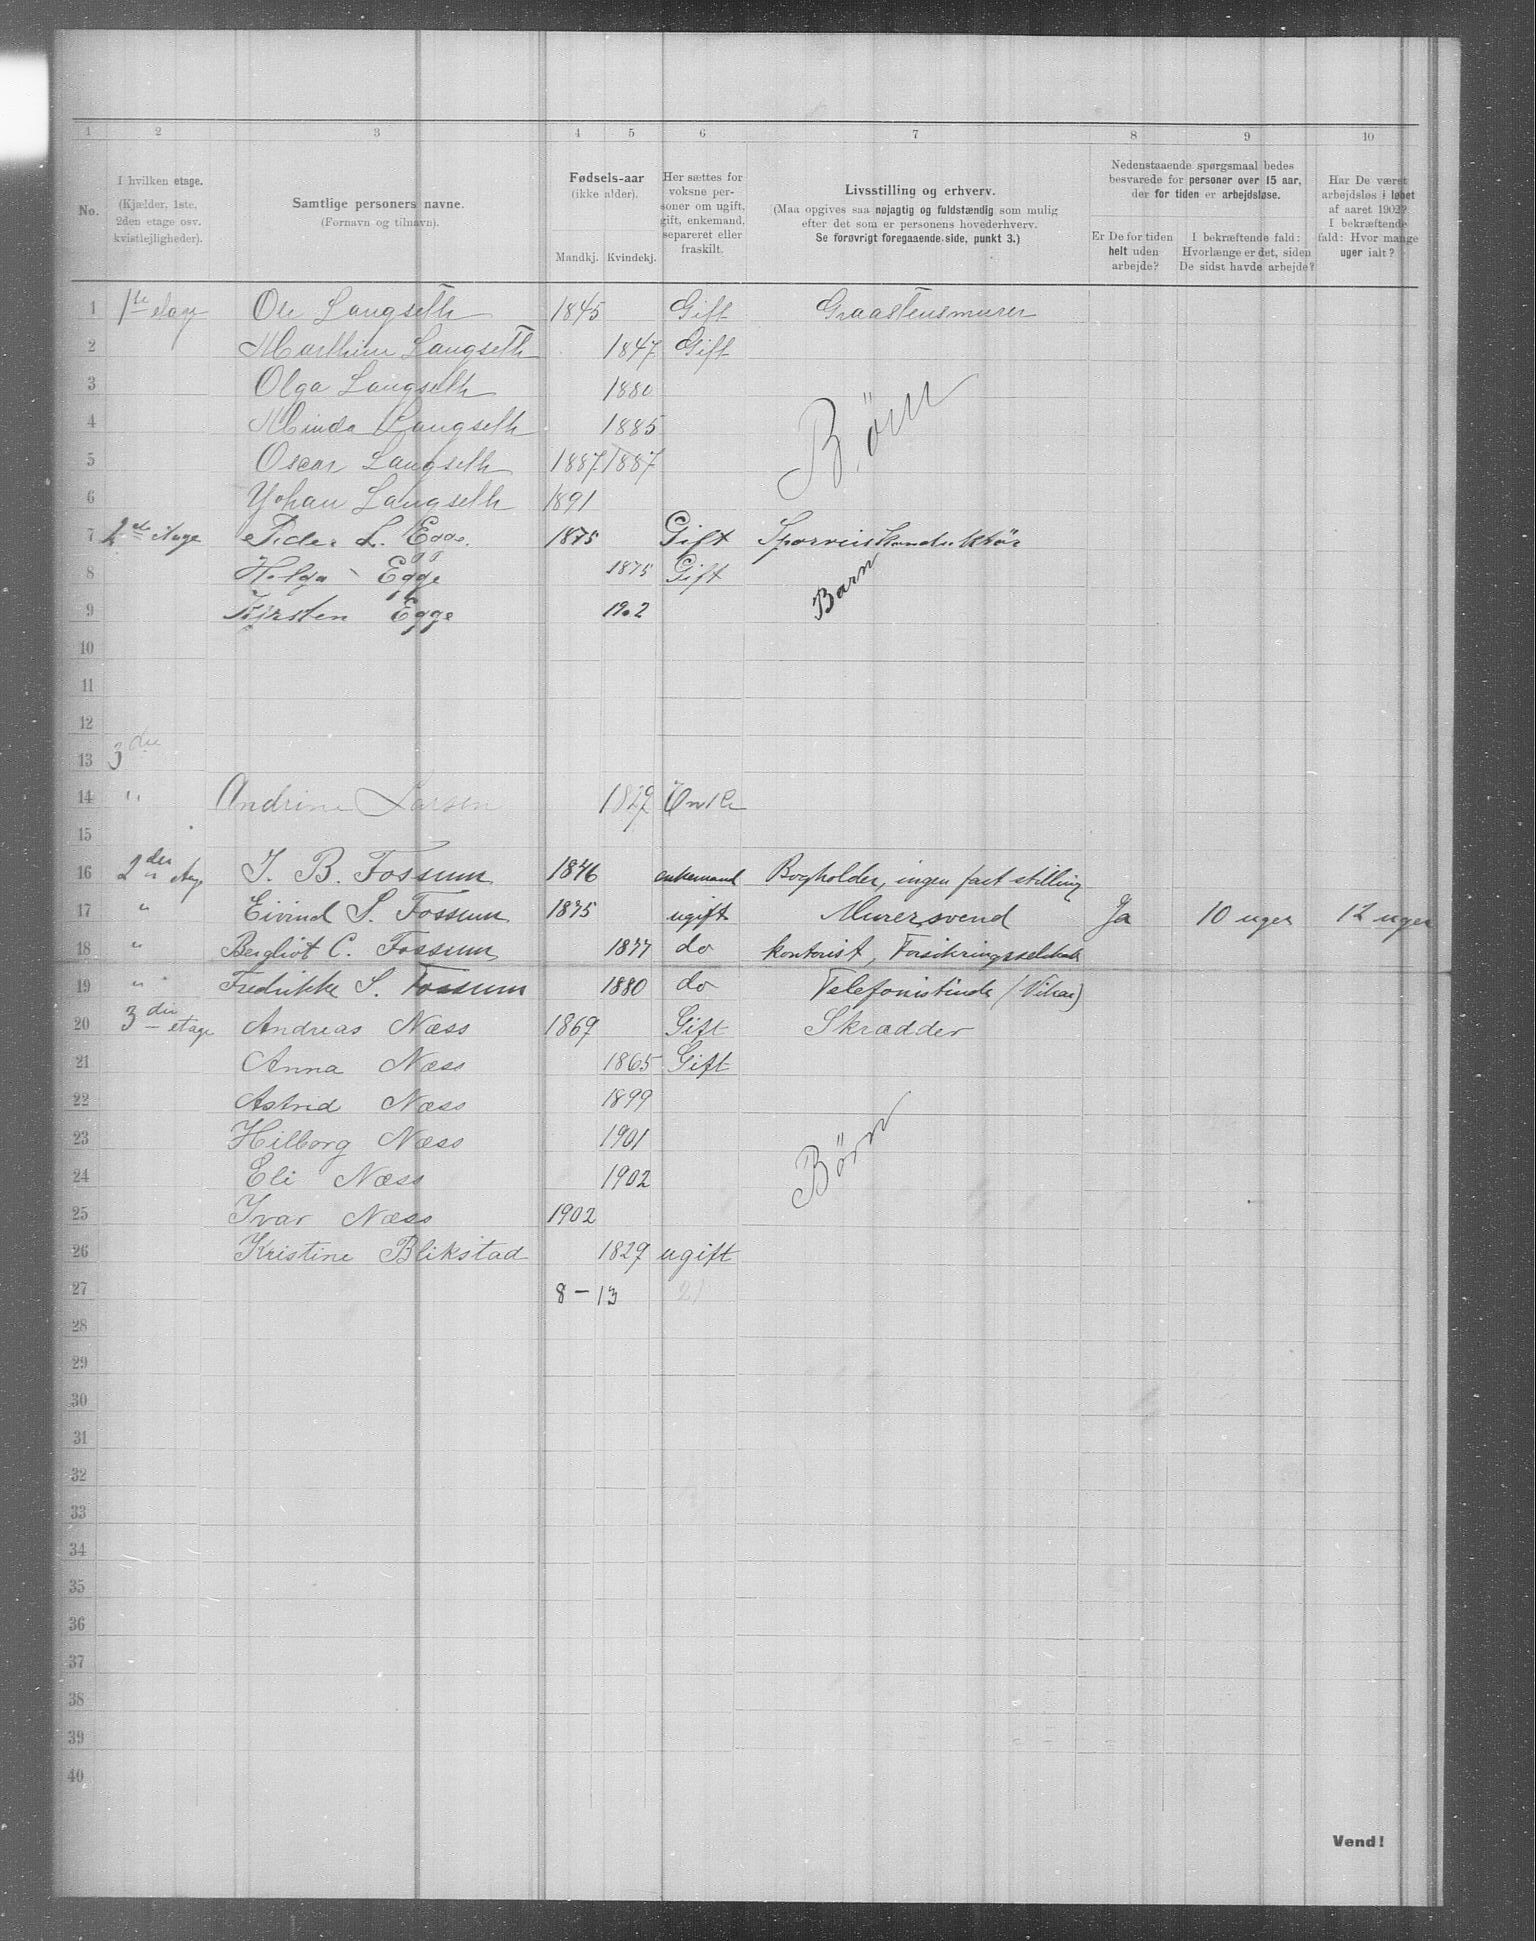 1 2 3 4 5 6 7 8 9 10
No.
I hvilken etage.
(Kjælder, 1ste,
2den etage osv.
kvistlejligheder).
Samtlige personers navne.
(Fornavn og tilnavn).
Fødsels-aar
(ikke alder).
Mandkj. Kvindekj.
Her sættes for
voksne per-
soner om ugift,
gift, enkemand,
separeret eller
fraskilt.
Livsstilling og erhverv.
(Maa opgives saa nøjagtig og fuldstændig som mulig
efter det som er personens hovederhverv.
Se forøvrigt foregaaende side, punkt 3.)
Nedenstaaende spørgsmaal bedes
besvarede for personer over 15 aar,
der for tiden er arbejdsløse.
Er De for tiden
helt uden
arbejde?
I bekræftende fald:
Hvorlænge er det, siden
De sidst havde arbejde?
Har De været
arbejdsløs i løbet
af aaret 1902?
I bekræftende
fald: Hvor mange
uger ialt?
1 1ste etage Ole Langseth 1845 Gift Graastensmurer
2 Marthine Langseth 1847 Gift
3 Olga Langseth 1880
4 Minda Langseth 1885 Børn
5 Oscar Langseth 1887 1887
6 Johan Langseth 1891
7 2de Etage Peder L. Egge. 1875 Gift Sporveiskonduktør
8 Helga Egge 1875 Gift
9 Kirsten Egge 1902 Barn
10
11
12
13 3die
14 " Andrine Larsen 1829 Enke
15
16 2den Etage J. B. Fossum 1846 enkemand Bogholder, ingen fast stilling
17 " Eivind S. Fossum 1875 ugift Murersvend Ja 10 uger 12 uger
18 " Bergliot C. Fossum 1877 do kontorist, Forsikringsselskab
19 " Fredrikke S. Fossum 1880 do Telefonistinde (Vikar)
20 3die etage Andreas Næss 1869 Gift Skrædder
21 Anna Næss 1865 Gift
22 Astrid Næss 1899
23 Hilborg Næss 1901 Børn
24 Eli Næss 1902
25 Ivar Næss 1902
26 Kristine Blikstad 1829 ugift
27 8 - 13 21
28
29
30
31
32
33
34
35
36
37
38
39
40
Vend!